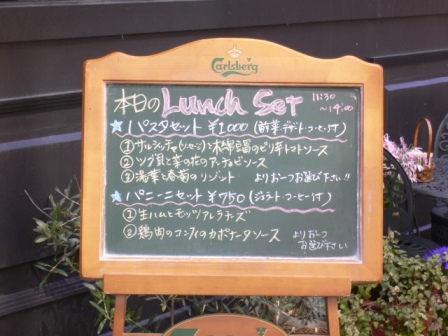 Carlsberg
本日の Lunch Set 11:30
～14:00
パスタセット ¥1,000 (前菜・デザート・コーヒー付)
① サルシッチャ(ソーセージ)と木綿豆腐のピリ辛トマトソース
② ツブ貝と菜の花のアンチョビソース
③ 海藻と春菊のリゾット よりお一つお選び下さい!!
パニーニセット ¥750 (ジェラート コーヒー付)
① 生ハムとモッツァレラチーズ
② 鶏肉のコンフィのカポナータソース
よりお一つ
お選び下さい